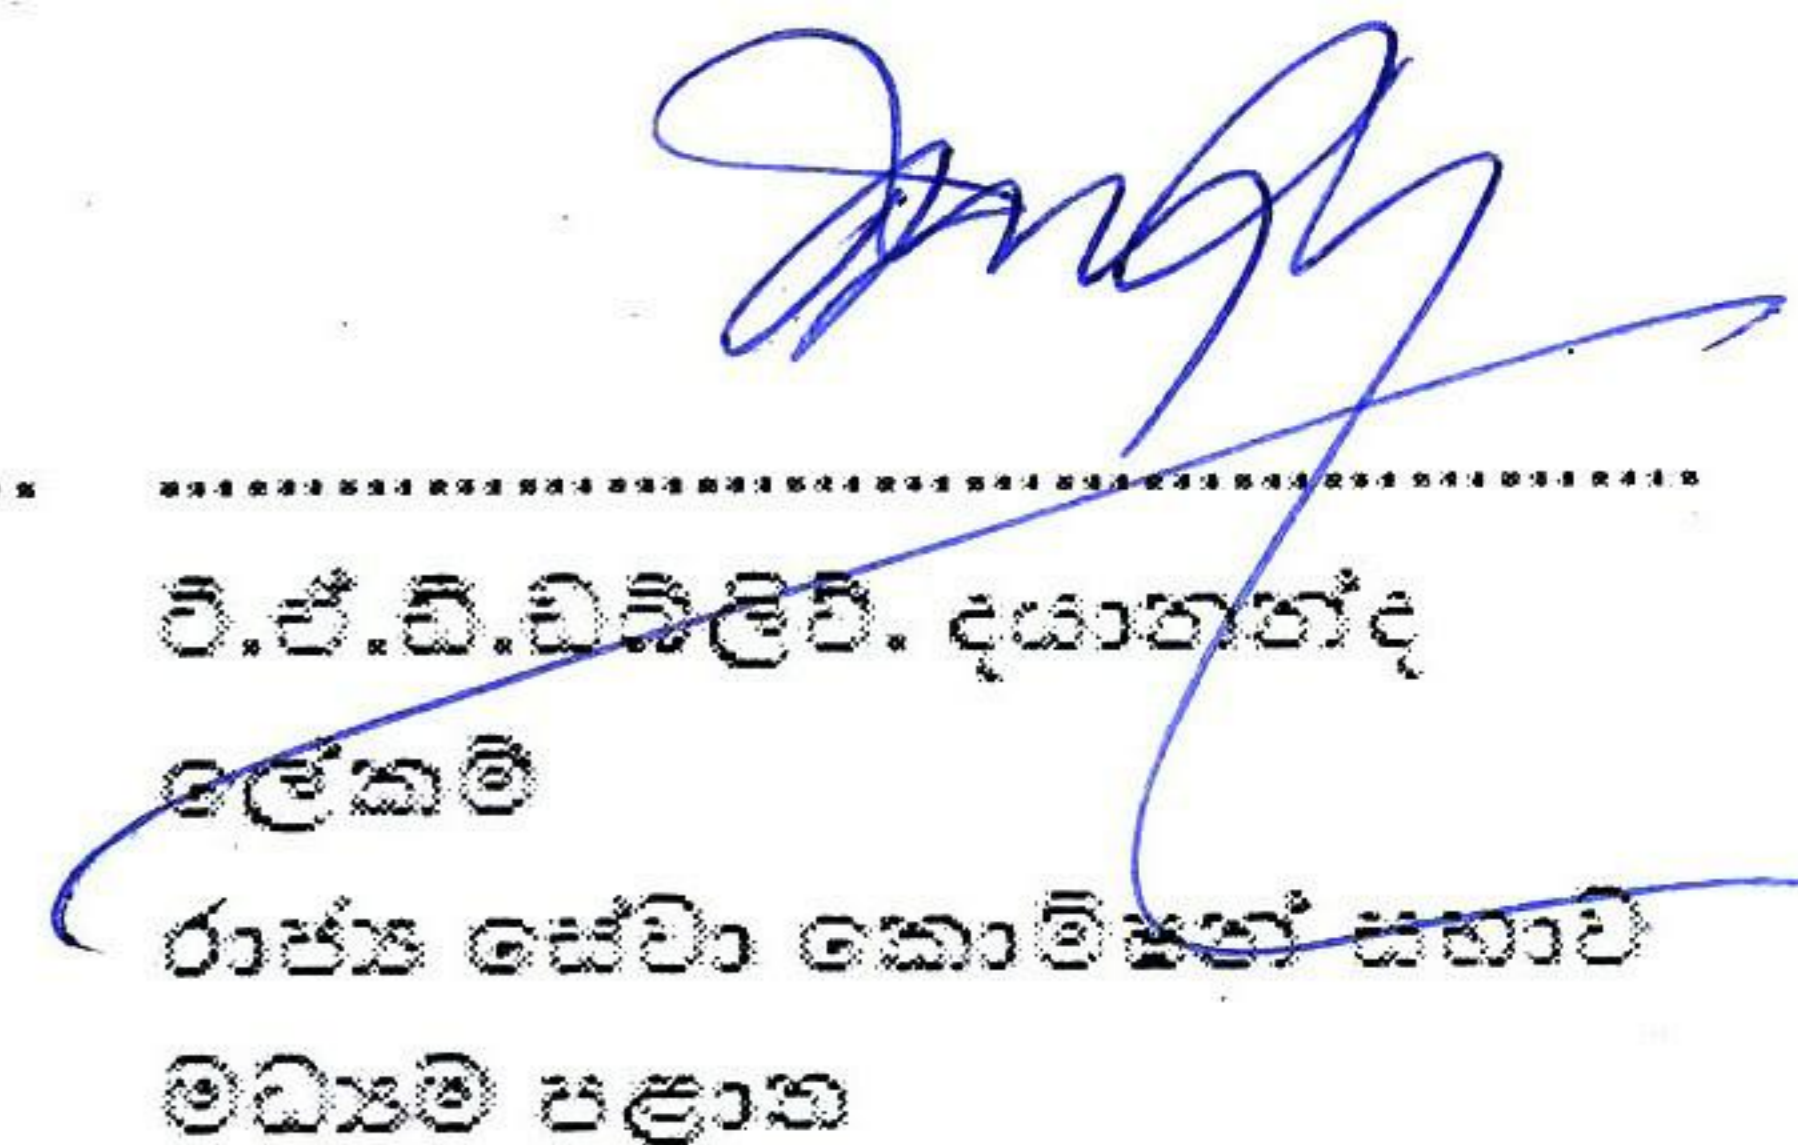 වී.ඒ.ඩී.ඩබ්ලිව්. දයානන්ද
ලේකම්
රාජ්‍ය සේවා කොමිෂන් සභාව
මධ්‍යම පළාත